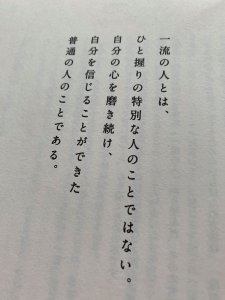 一流の人とは、
ひと握りの特別な人のことではない。
自分の心を磨き続け、
自分を信じることができた
普通の人のことである。